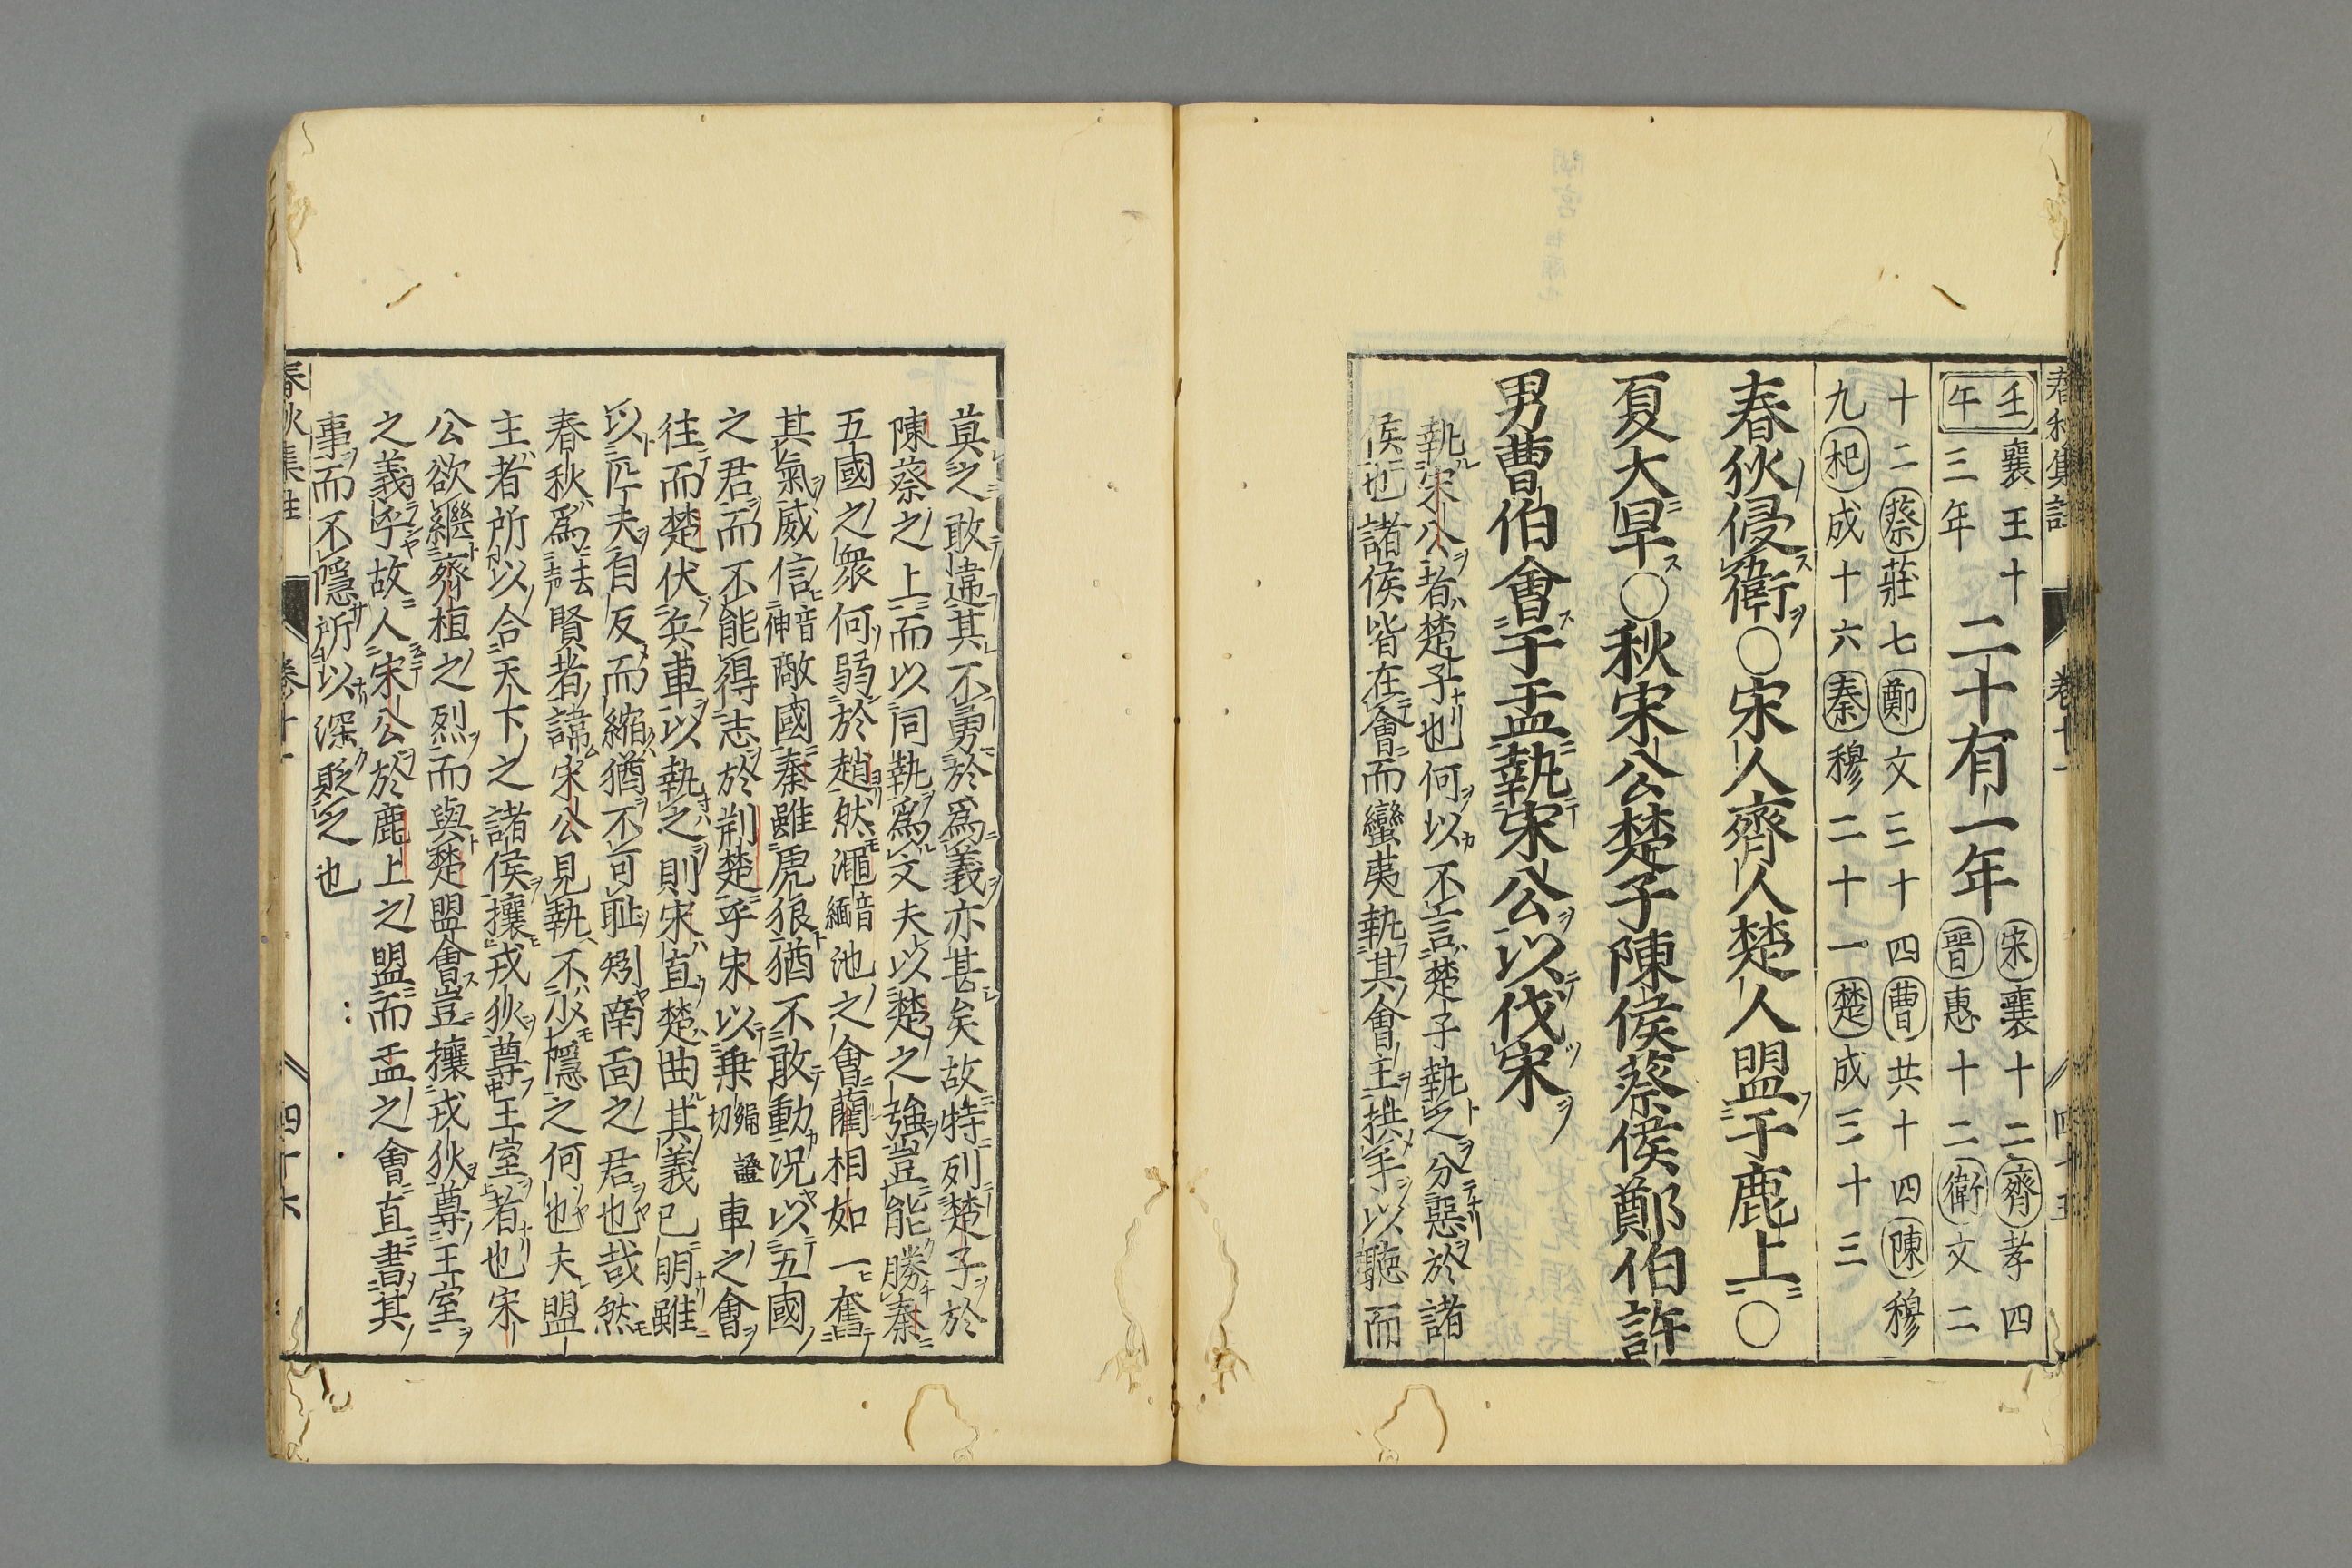 春秋集註 卷十一 四十五
壬午 襄王十三年 二十有一年 宋襄十二齊孝四晉惠十二衛文二
十二蔡莊七鄭文三十四曹共十四陳穆
九杞成十六秦穆二十一楚成三十三
春狄侵衛○宋人齊人楚人盟于鹿上○
夏大旱○秋宋公楚子陳侯蔡侯鄭伯許
男曹伯會于盂執宋公以伐宋
執宋公者楚子也何以不言楚子執之分惡於諸
侯也諸侯皆在會而蠻夷執其會主拱手以聽而
莫之敢違其不勇於爲義亦甚矣故特列楚子於
陳蔡之上而以同執爲文夫以楚之強豈能勝秦
五國之衆何弱於趙然澠音緬池之會藺相如一奮
其氣威信音伸敵國秦雖虎狼猶不敢動況以五國
之君而不能得志於荊楚乎宋以乗繩證切車之會
往而楚伏兵車以執之則宋直楚曲其義已明雖
以匹夫自反而縮猶不可恥矧南面之君也哉然
春秋爲去聲賢者諱宋公見執不少隱之何也夫盟
主者所以合天下之諸侯攘戎狄尊王室者也宋
公欲繼齊桓之烈而與楚盟會豈攘戎狄尊王室
之義乎故人宋公於鹿上之盟而盂之會直書其
事而不隱所以深貶之也
春秋集註 卷十一 四十六